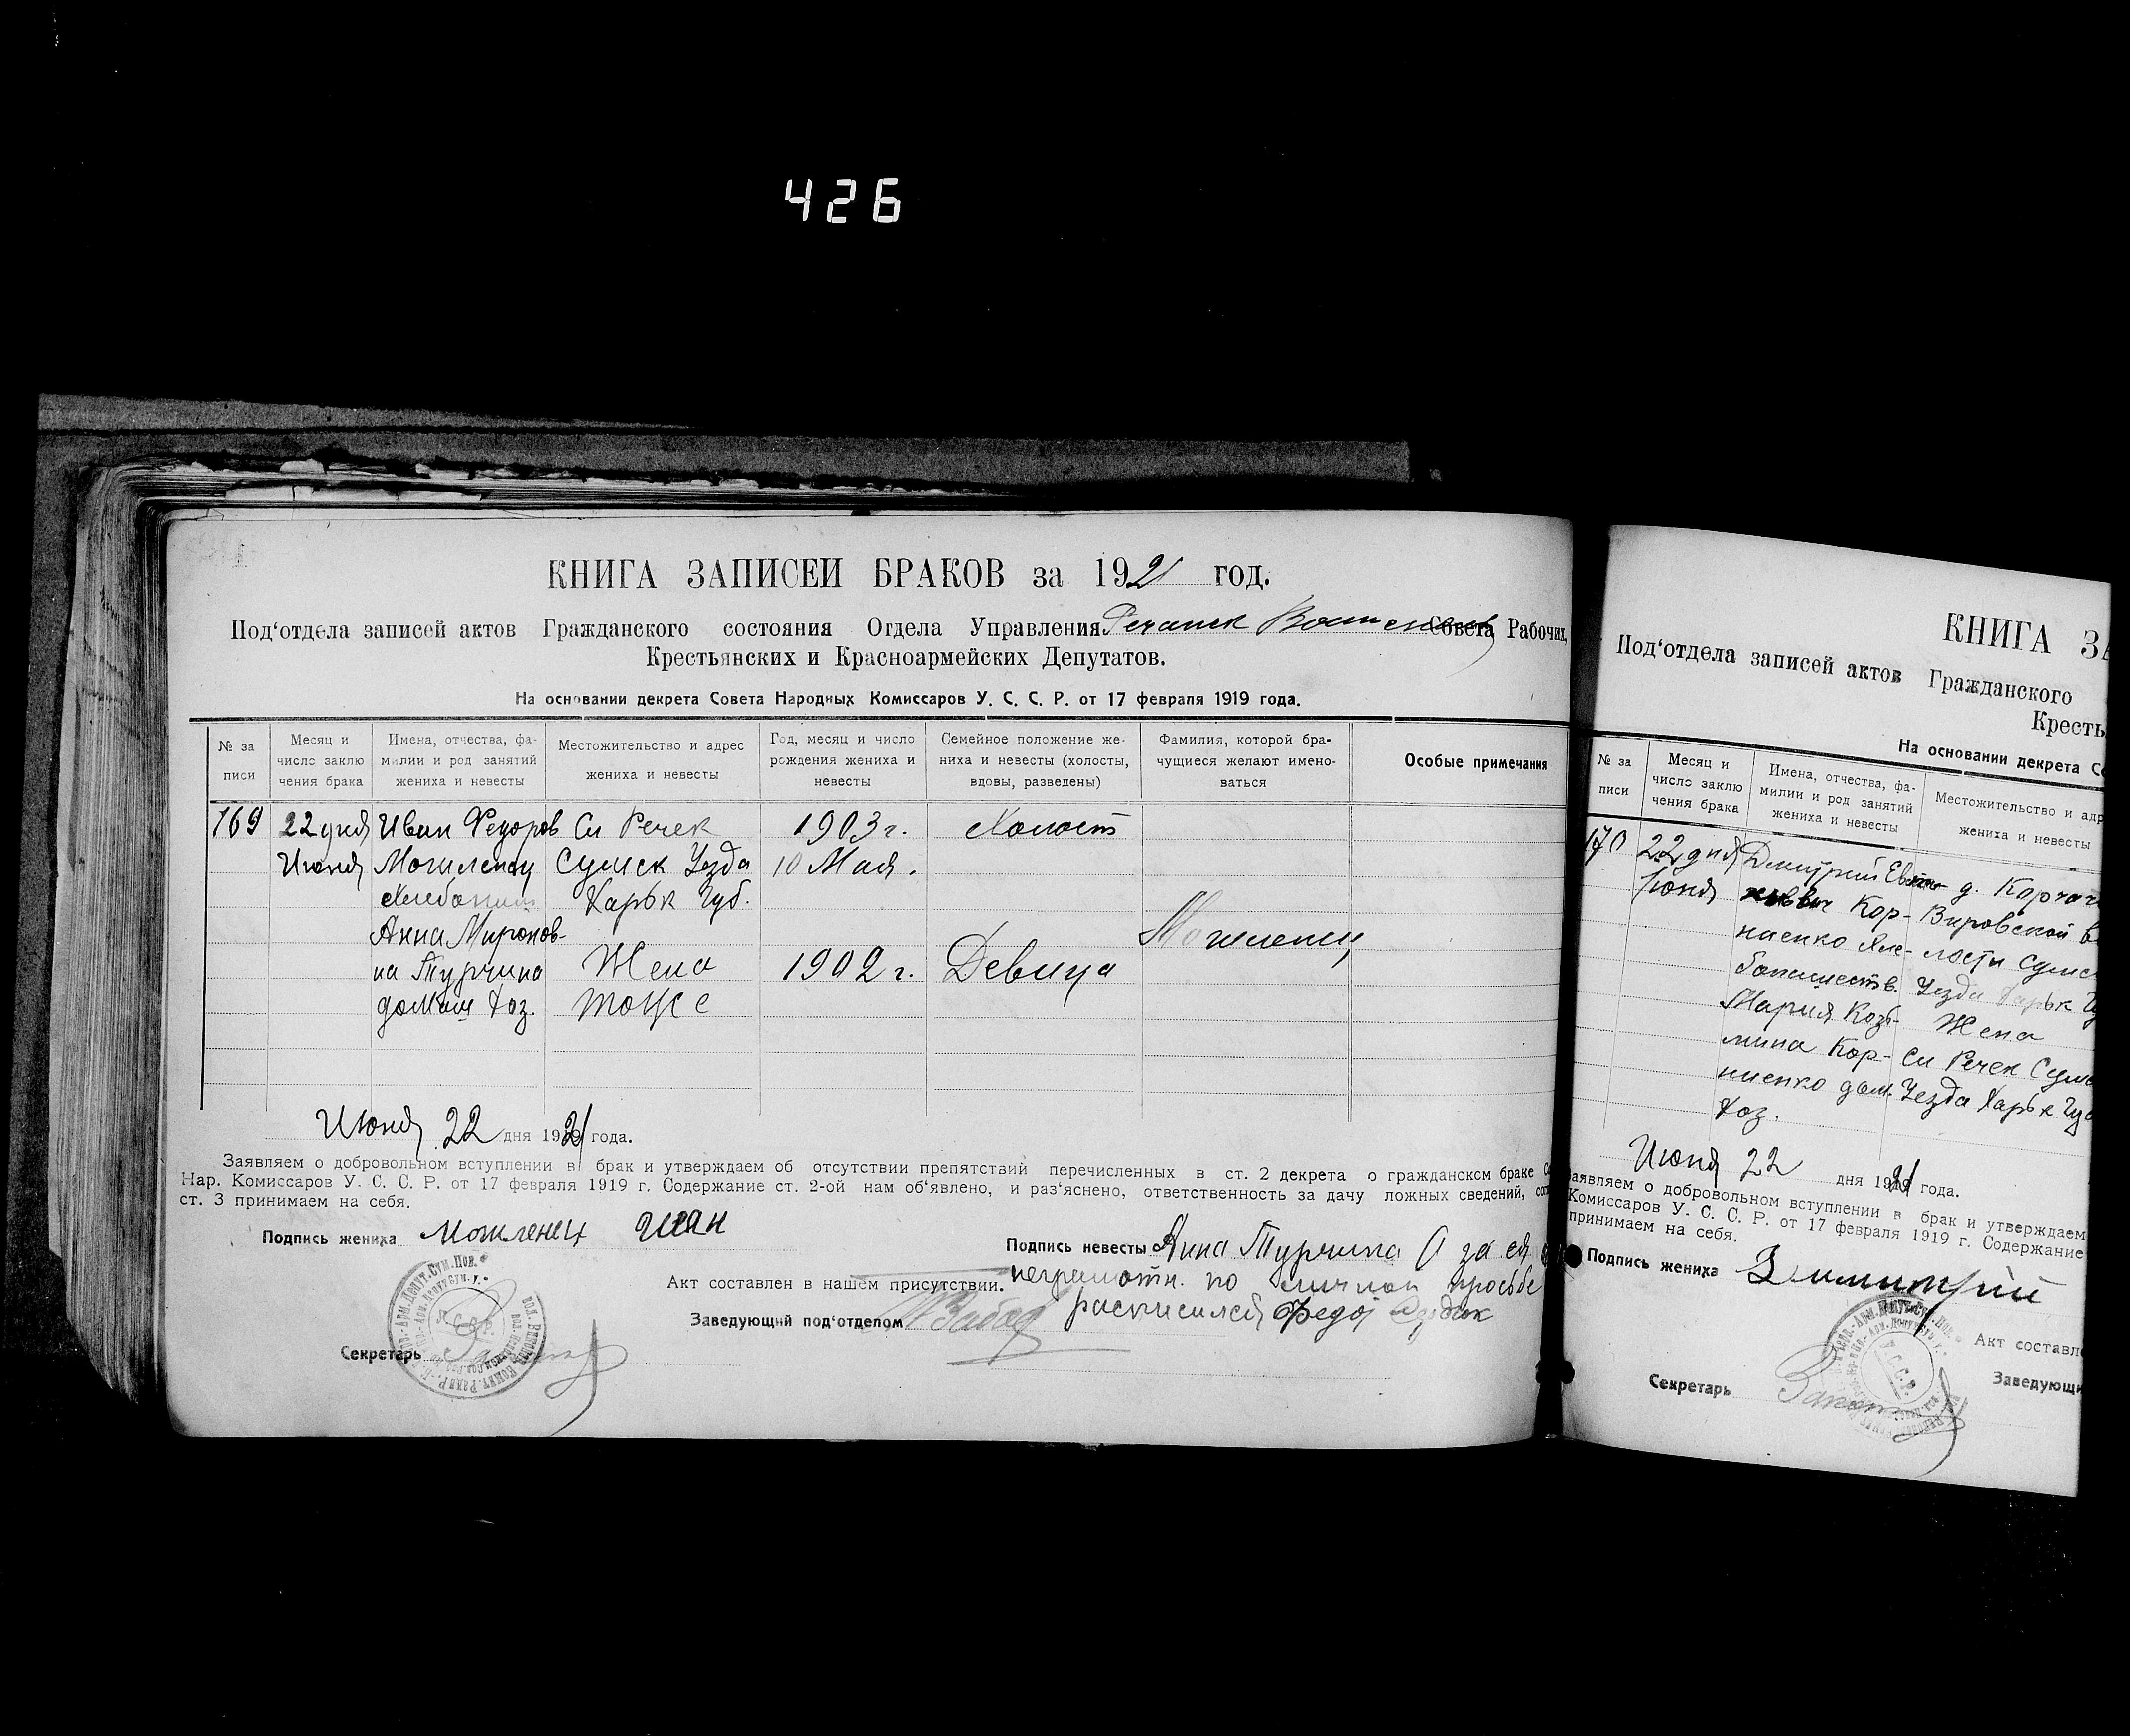 426
КНИГА ЗАПИСЕЙ БРАКОВ за 1921 год.
Под‘отдела записей актов Гражданского состояния Отдела Управления Совета Рабочих,
Крестьянских и Красноармейских Депутатов.
На основании декрета Совета Народных Комиссаров У. С. С. Р. от 17 февраля 1919 года.
№ за писи
Месяц и число заклю чения брака
Имена, отчества, фа- милии и род занятий жениха и невесты
Местожительство и адрес жениха и невесты
Год, месяц и число рождения жениха и невесты
Семейное положение же- ниха и невесты (холосты, вдовы, разведены)
Фамилия, которой бра- чущиеся желают имено- ваться
Особые примечания
169 22 дня Иван Федоров Сл Речек 1903 г. Холост
Июня Могиленец Сумск Уезда 10 Мая.
Харьк Губ.
Анна Миронов- Могиленец
на Турчина Жена 1902 г. Девица
домаш хоз. тоже
Июня 22 дня 1921 года.
Заявляем о добровольном вступлении в брак и утверждаем об отсутствии препятствий перечисленных в ст. 2 декрета о гражданском браке
Нар. Комиссаров У. С. С. Р. от 17 февраля 1919 г. Содержание ст. 2-ой нам об‘явлено, и раз‘яснено, ответственность за дачу ложных сведений,
ст. 3 принимаем на себя.
Подпись жениха Могиленец
Подпись невесты Анна Турчина А за ея
Акт составлен в нашем присутствии. неграмотн. по личной просьбе
Заведующий под‘отделом расписился Федор
Секретарь
КНИГА
Под‘отдела записей актов Гражданского
На основании декрета
№ за писи
Месяц и число заклю чения брака
Имена, отчества, фа- милии и род занятий жениха и невесты
Местожительство и жениха и невесты
170 22 дня Дмитрий д.
Июня Кор- Вировской
ниенко Хле- лости
бопашеств. Уезда Харьк
Мария Козь- Жена
мина Кор- Сл Речек
ниенко дом. Уезда Харьк
хоз.
Июня 22 дня 1921 года.
Заявляем о добровольном вступлении в брак и утверждаем
Комиссаров У. С. С. Р. от 17 февраля 1919 г. Содержание
принимаем на себя.
Подпись жениха
Акт
Секретарь